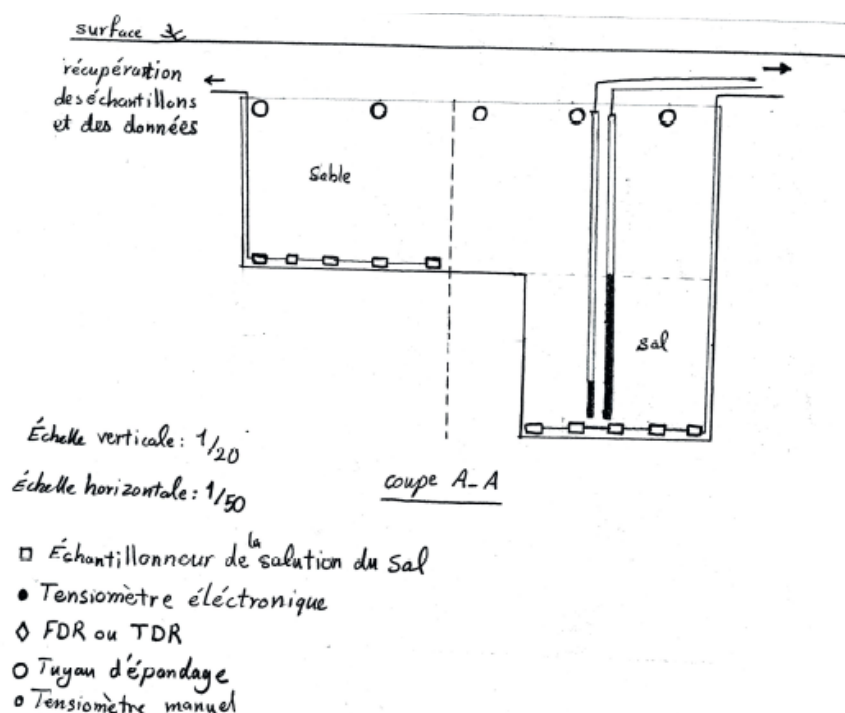 surface
récupération
des échantillons
et des données
Sable
sal
Échelle verticale: 1/20
Échelle horizontale: 1/50
coupe A-A
Échantillonneur de la salution du Sal
Tensiomètre éléctronique
FDR ou TDR
Tuyau d'épandage
Tensiomètre manuel